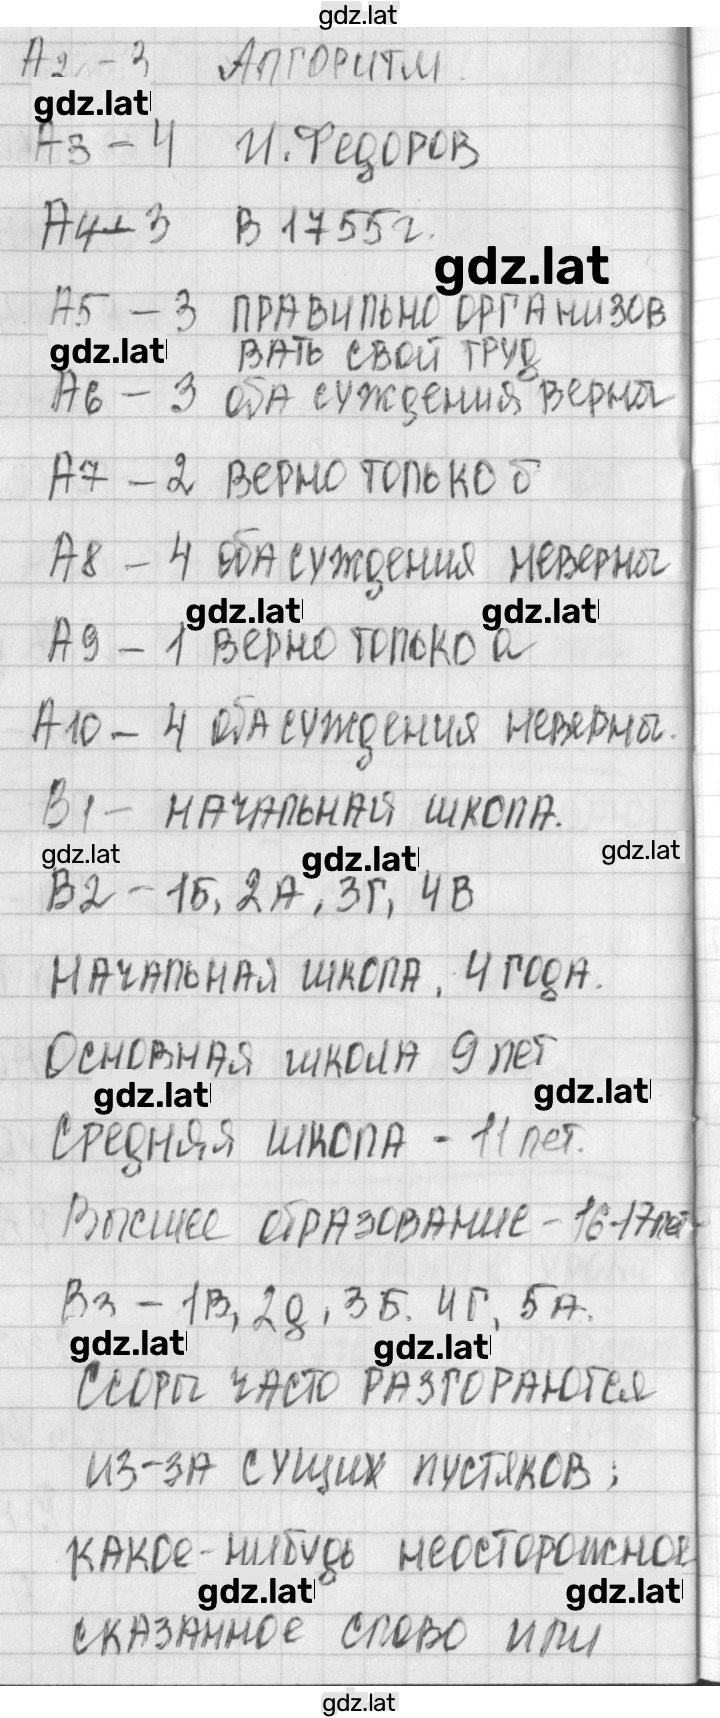 gdz.lat
А2 - 3 Алгоритм
gdz.lat
А3 - 4 И. Федоров
А4 - 3 В 1755 г.
gdz.lat
А5 - 3 правильно организов
gdz.lat вать свой труд
А6 - 3 оба суждения верны
А7 - 2 верно только б
А8 - 4 оба суждения неверны
gdz.lat gdz.lat
А9 - 1 верно только а
А10 - 4 оба суждения неверны.
В1 - начальная школа.
gdz.lat gdz.lat gdz.lat
В2 - 1Б, 2А, 3Г, 4В
Начальная школа, 4 года.
Основная школа 9 лет
gdz.lat gdz.lat
Средняя школа - 11 лет.
Высшее образование - 16-17 лет
В3 - 1В, 2д, 3Б. 4Г, 5А.
gdz.lat gdz.lat
Ссоры часто разгораются
из-за сущих пустяков;
какое-нибудь неосторожное
gdz.lat gdz.lat
сказанное слово или
gdz.lat